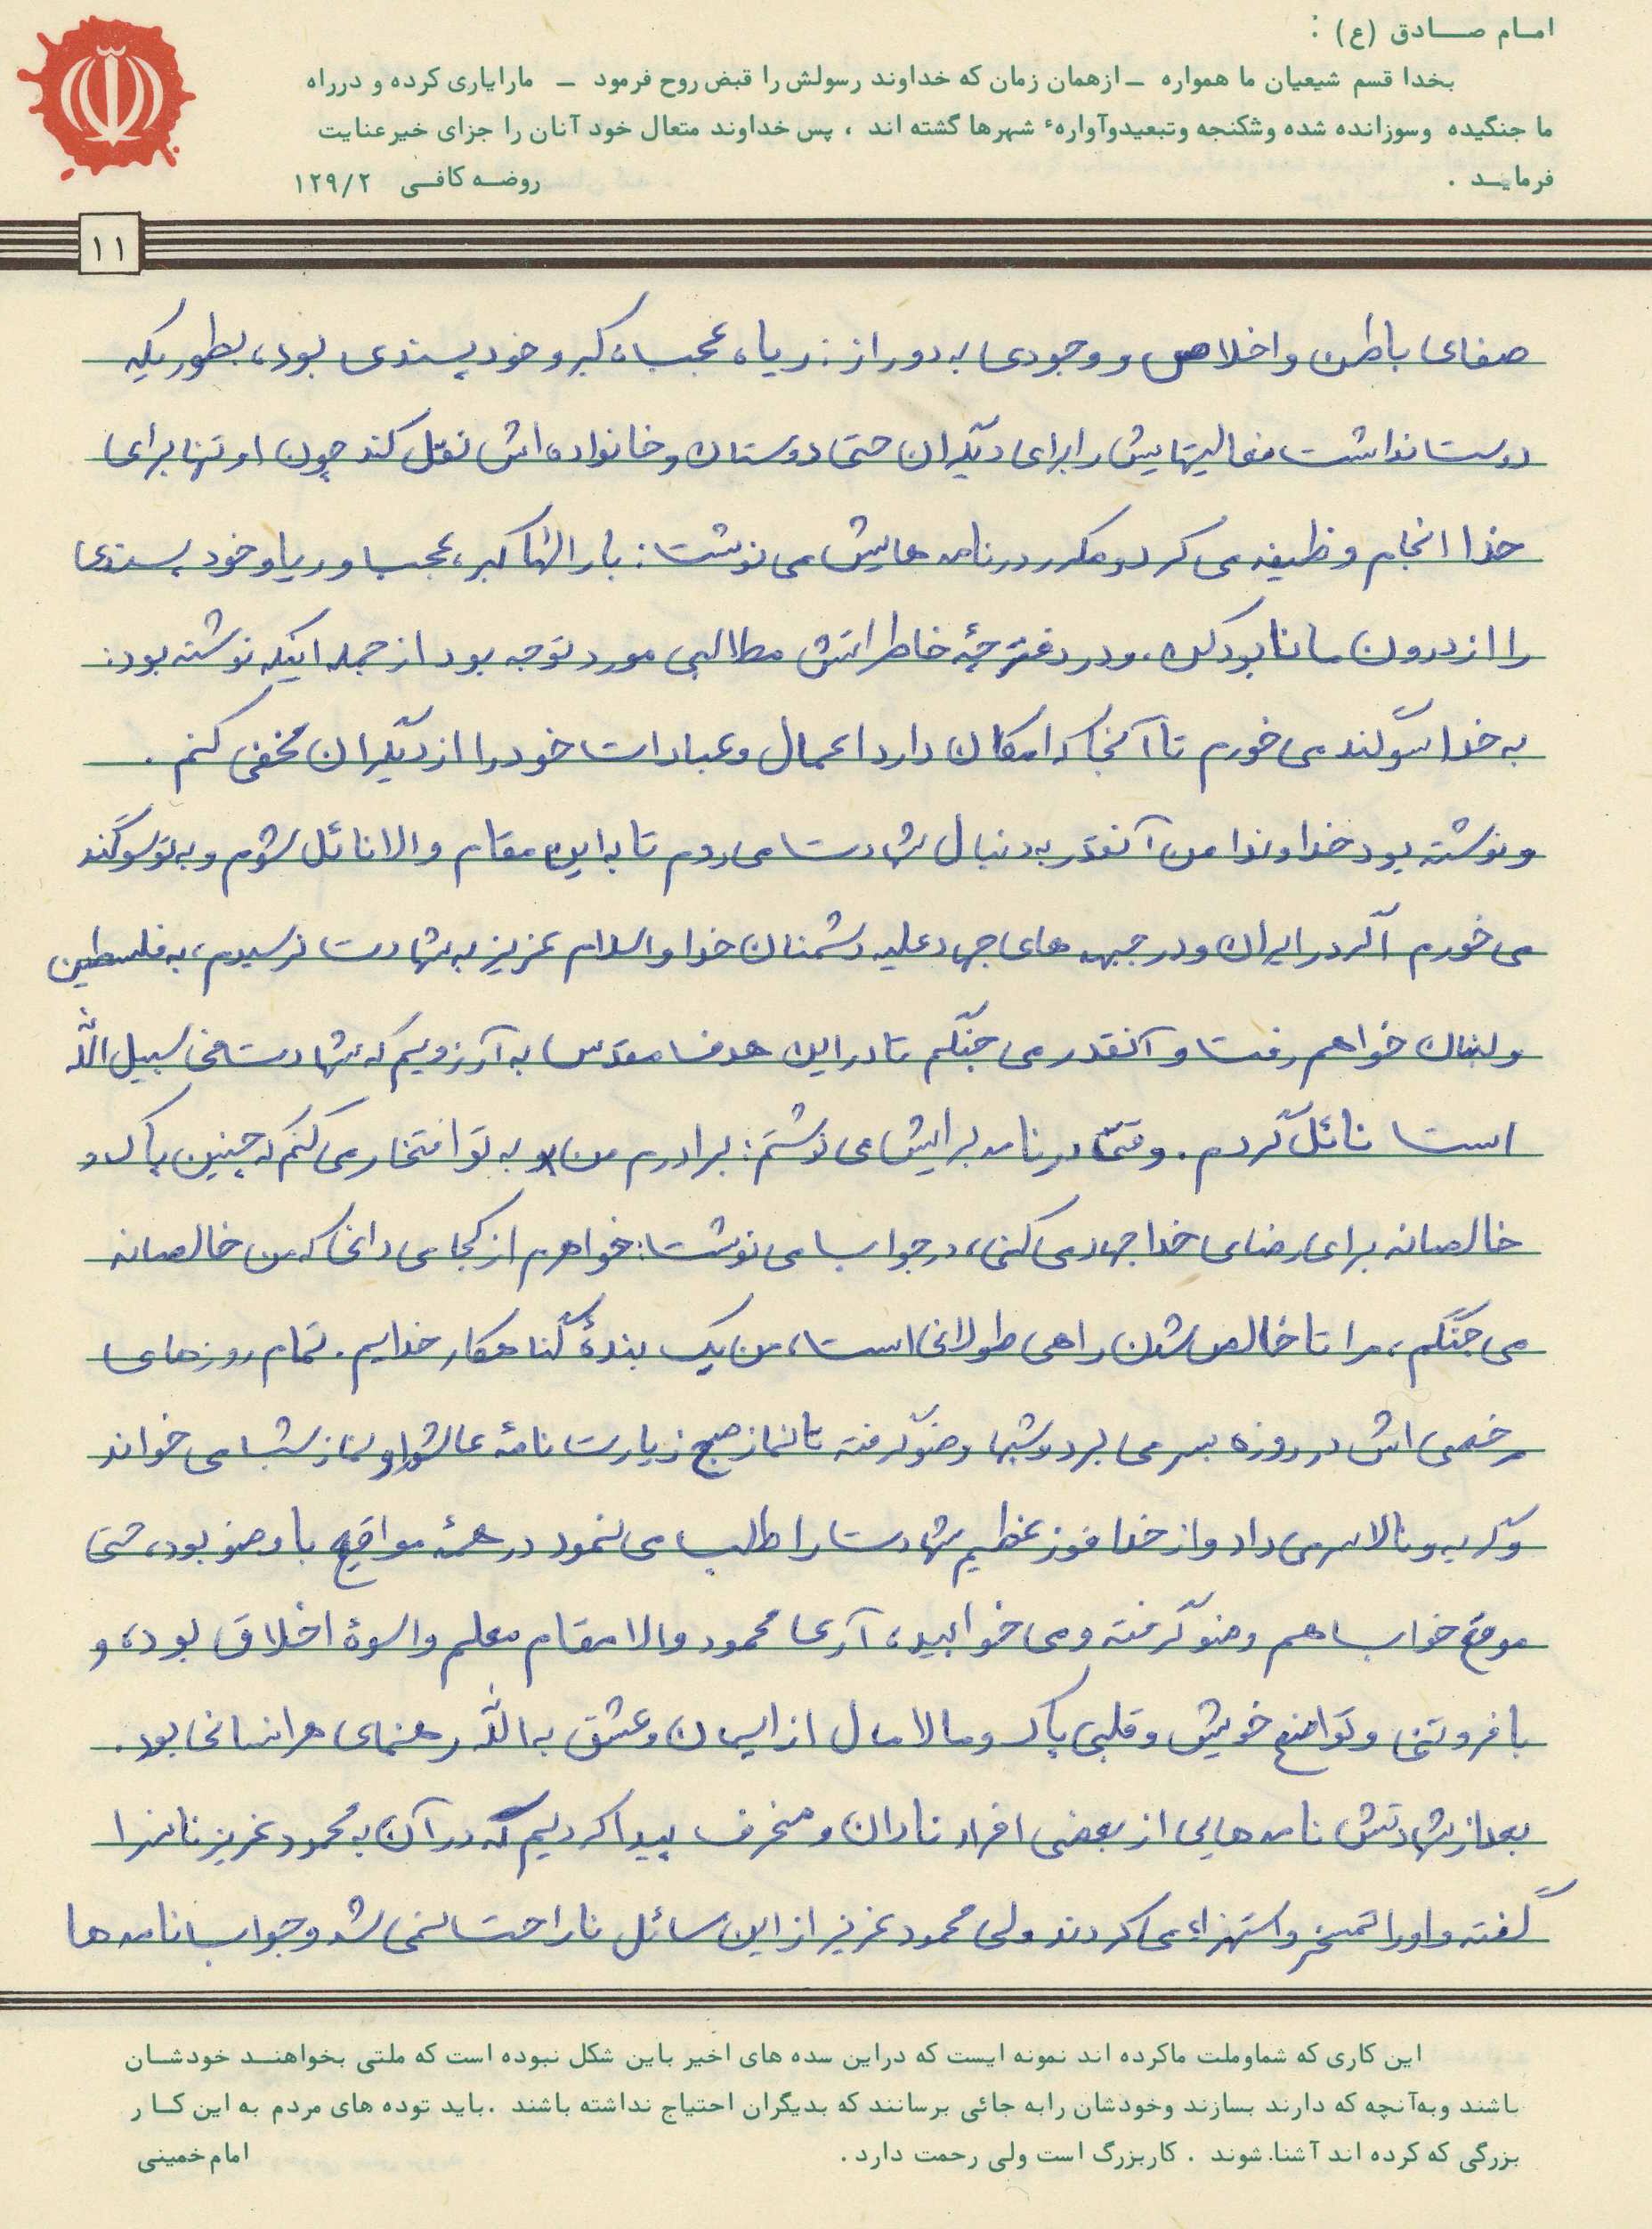 امـام صـــادق (ع) :
بخدا قسم شیعیان ما همواره ـ ازهمان زمان که خداوند رسولش را قبض روح فرمود ـ مارایاری کرده و درراه
ما جنگیده وسوزانده شده وشکنجه وتبعیدوآوارهٔ شهرها گشته اند ، پس خداوند متعال خود آنان را جزای خیرعنایت
فرمایـد . روضـه کافـی ۱۲۹/۲
۱۱
صفای باطن و اخلاص و وجودی به دور از : ریا، عجب، کبر و خودپسندی بود، بطوریکه
دوست نداشت فعالیتهایش را برای دیگران حتی دوستان و خانواده اش نقل کند چون او تنها برای
خدا انجام وظیفه می کرد و مکرر در نامه هایش می نوشت : بارالها کبر، عجب و ریا و خودپسندی
را از درون ما نابود کن، و در دفترچهٔ خاطراتش مطالبی مورد توجه بود از جمله اینکه نوشته بود :
به خدا سوگند می خورم تا آنجا که امکان دارد اعمال و عبادات خود را از دیگران مخفی کنم .
و نوشته بود خداوندا من آنقدر به دنبال شهادت می روم تا به این مقام والا نائل شوم و به تو سوگند
می خورم اگر در ایران و در جبهه های جهاد علیه دشمنان خدا و اسلام عزیز به شهادت نرسیدم، به فلسطین
و لبنان خواهم رفت و آنقدر می جنگم تا در این هدف مقدس به آرزویم که شهادت فی سبیل الله
است نائل گردم . وقتی در نامه برایش می نوشتم : برادرم من به تو افتخار می کنم که چنین پاک و
خالصانه برای رضای خدا جهاد می کنی، در جواب می نوشت : خواهرم از کجا می دانی که من خالصانه
می جنگم، مرا تا خالص شدن راهی طولانی است، من یک بندهٔ گناهکار خدایم . تمام روزهای
مرخصی اش در روزه بسر می برد و شبها وضو گرفته تا نماز صبح زیارت نامهٔ عاشورا و نماز شب می خواند
و گریه و نالا سر می داد و از خدا فوز عظیم شهادت را طلب می نمود در همهٔ مواقع با وضو بود، حتی
موقع خواب هم وضو گرفته و می خوابید، آری محمود والا مقام معلم و اسوهٔ اخلاق بود، و
با فروتنی و تواضع خویش و قلبی پاک و مالامال از ایمان و عشق به الله رهنمای هر انسانی بود .
بعد از شهادتش نامه هایی از بعضی افراد نادان و منحرف پیدا کردیم که در آن به محمود عزیز ناسزا
گفته و او را تمسخر و استهزاء می کردند ولی محمود عزیز از این مسائل ناراحت نمی شد و جواب نامه ها
این کاری که شماوملت ماکرده اند نمونه ایست که دراین سده های اخیر باین شکل نبوده است که ملتی بخواهنـد خودشـان
باشند وبه‌آنچه که دارند بسازند وخودشان رابه جائی برسانند که بدیگران احتیاج نداشته باشند .باید توده های مردم به این کـار
بزرگی که کرده اند آشنا.شوند . کاربزرگ است ولی رحمت دارد . امام خمینی